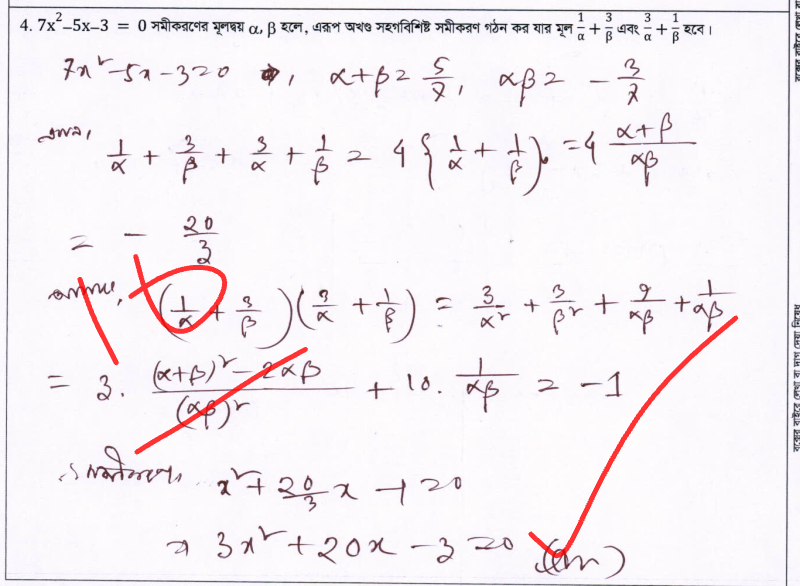 4. 7x²–5x–3 = 0 সমীকরণের মূলদ্বয় α, β হলে, এরূপ অখণ্ড সহগবিশিষ্ট সমীকরণ গঠন কর যার মূল 1/α + 3/β এবং 3/α + 1/β হবে।
7x²-5x-3=0 , α+β = 5/7, αβ = -3/7
1/α + 3/β + 3/α + 1/β = 4 {1/α + 1/β} = 4 (α+β)/αβ
= - 20/3
(1/α + 3/β)(3/α + 1/β) = 3/α² + 3/β² + 9/αβ + 1/αβ
= 3. ((α+β)²-2αβ)/(αβ)² + 10. 1/αβ = -1
সমীকরণ, x² + 20/3 x -1 = 0
⇒ 3x² + 20x - 3 = 0 (Ans)
10